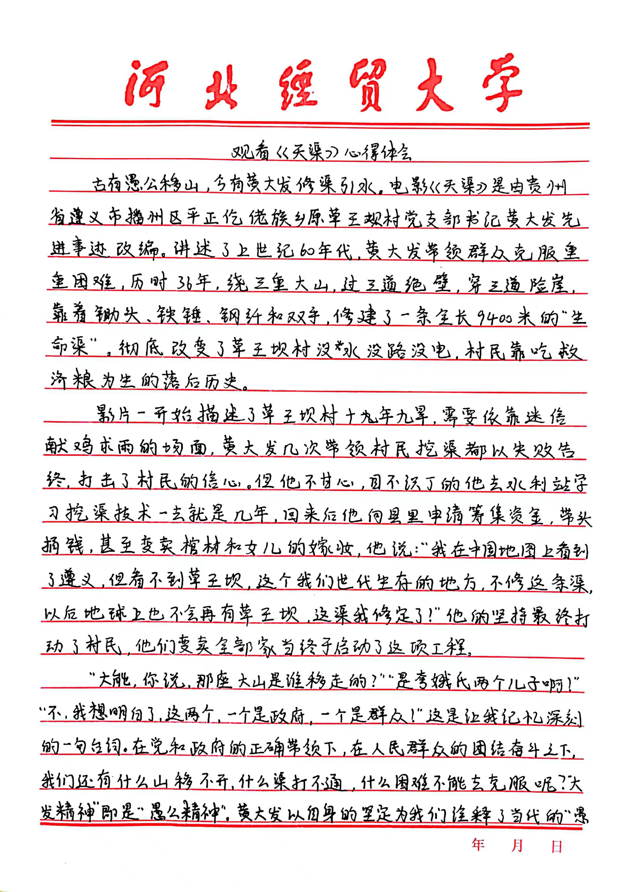 河北经贸大学
观看《天渠》心得体会
古有愚公移山，今有黄大发修渠引水。电影《天渠》是由贵州
省遵义市播州区平正仡佬族乡原草王坝村党支部书记黄大发先
进事迹改编。讲述了上世纪60年代，黄大发带领群众克服重
重困难，历时36年，绕三重大山，过三道绝壁，穿三道险崖，
靠着锄头、铁锤、钢钎和双手，修建了一条全长9400米的“生
命渠”。彻底改变了草王坝村没水没路没电，村民靠吃救
济粮为生的落后历史。
影片一开始描述了草王坝村十九年九旱，需要依靠迷信
献鸡求雨的场面，黄大发几次带领村民挖渠都以失败告
终，打击了村民的信心。但他不甘心，目不识丁的他去水利站学
习挖渠技术一去就是几年，回来后他向县里申请筹集资金，带头
捐钱，甚至变卖棺材和女儿的嫁妆，他说：“我在中国地图上看到
了遵义，但看不到草王坝，这个我们世代生存的地方，不修这条渠，
以后地球上也不会再有草王坝，这渠我修定了！”他的坚持最终打
动了村民，他们变卖全部家当终于启动了这项工程。
“大能，你说，那座大山是谁移走的？”“是夸娥氏两个儿子啊！”
“不，我想明白了，这两个，一个是政府，一个是群众！”这是让我记忆深刻
的一句台词。在党和政府的正确带领下，在人民群众的团结奋斗之下，
我们还有什么山移不开，什么渠打不通，什么困难不能去克服呢？“大
发精神”即是“愚公精神”。黄大发以自身的坚定为我们诠释了当代的“愚
年 月 日